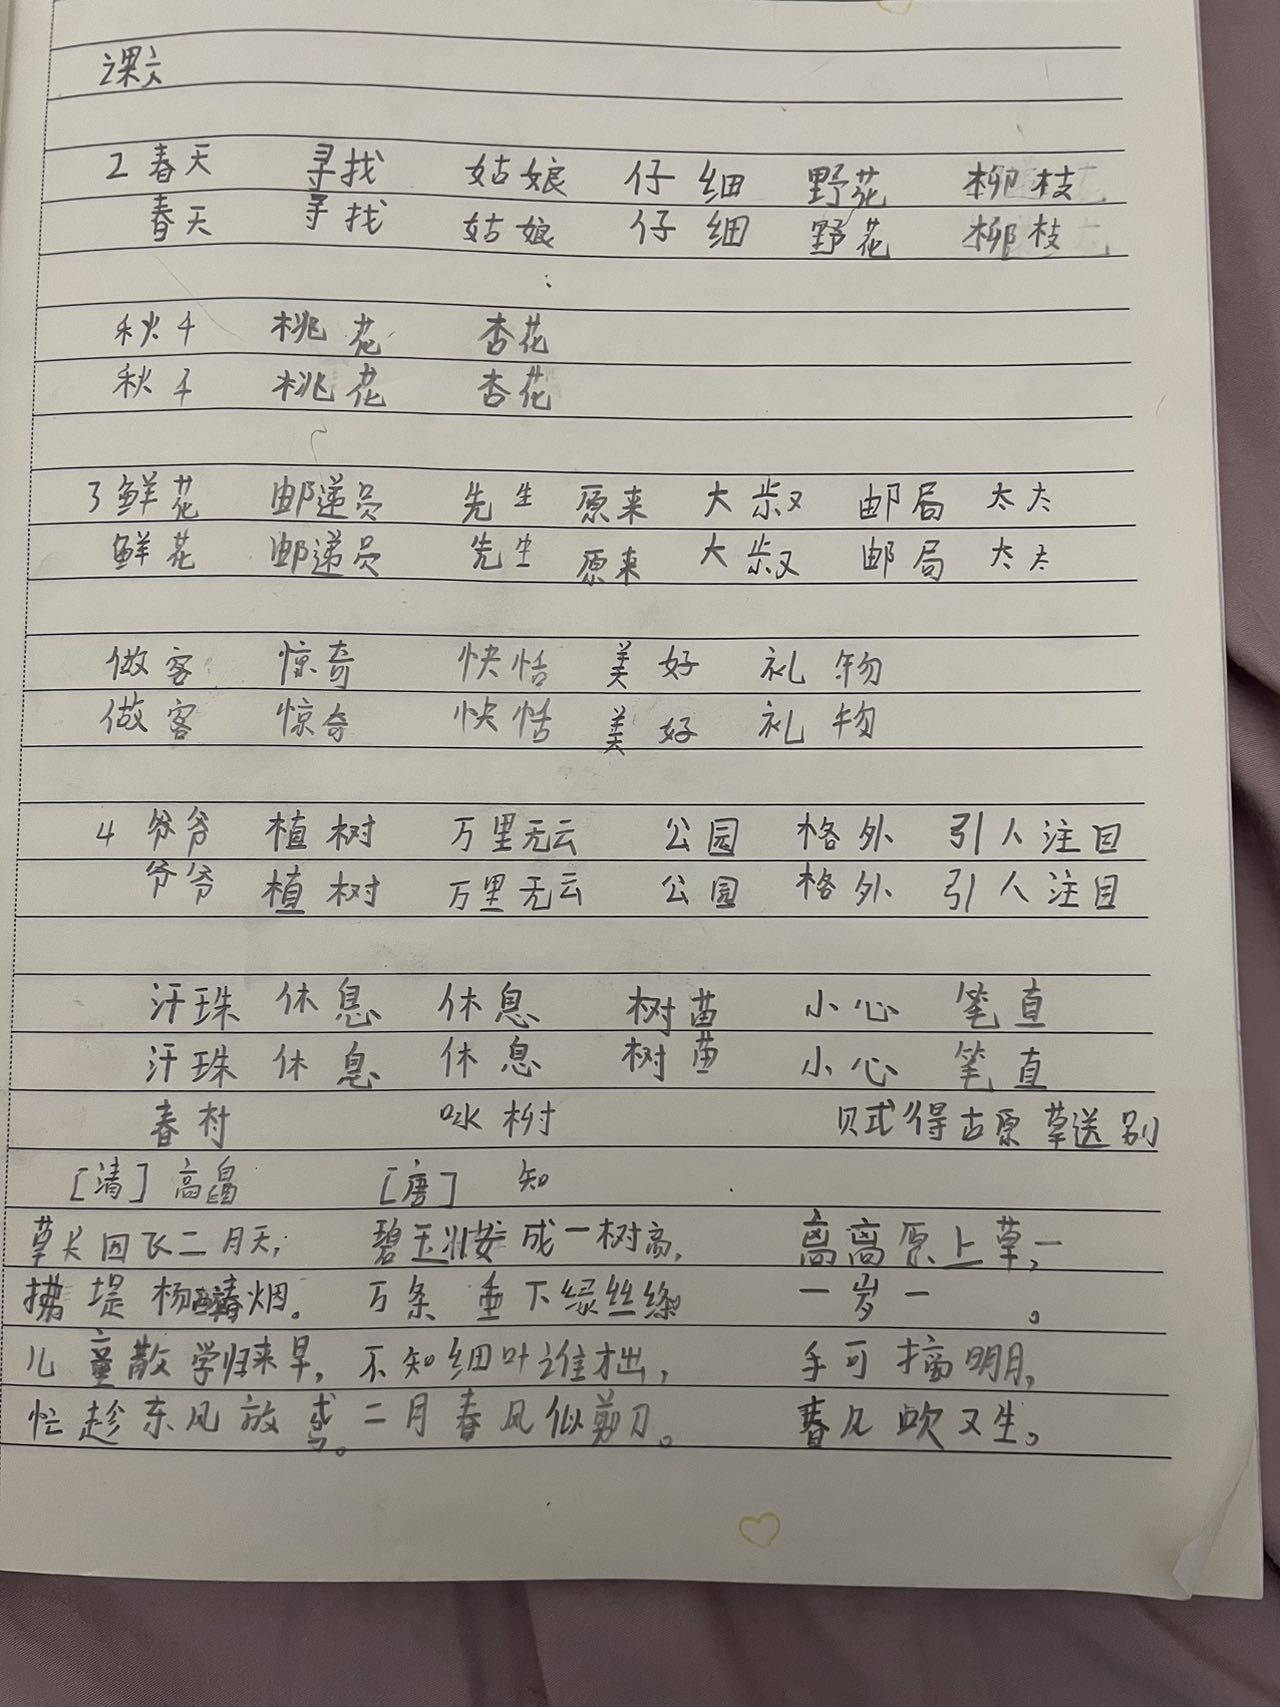 课文
2 春天 寻找 姑娘 仔细 野花 柳枝
春天 寻找 姑娘 仔细 野花 柳枝
秋千 桃花 杏花
秋千 桃花 杏花
3 鲜花 邮递员 先生 原来 大叔 邮局 太太
鲜花 邮递员 先生 原来 大叔 邮局 太太
做客 惊奇 快恬 美好 礼物
做客 惊奇 快恬 美好 礼物
4 爷爷 植树 万里无云 公园 格外 引人注目
爷爷 植树 万里无云 公园 格外 引人注目
汗珠 休息 休息 树苗 小心 笔直
汗珠 休息 休息 树苗 小心 笔直
春村 咏柳 贝式得古原草送别
[清] 高 [唐] 知
草长因飞二月天, 碧玉妆成一树高, 离离原上草,一
拂堤杨烟。 万条垂下绿丝绦 一岁一 。
儿童散学归来早, 不知细叶谁出, 手可摘明月,
忙趁东风放鸢。 二月春风似剪刀。 春风吹又生。